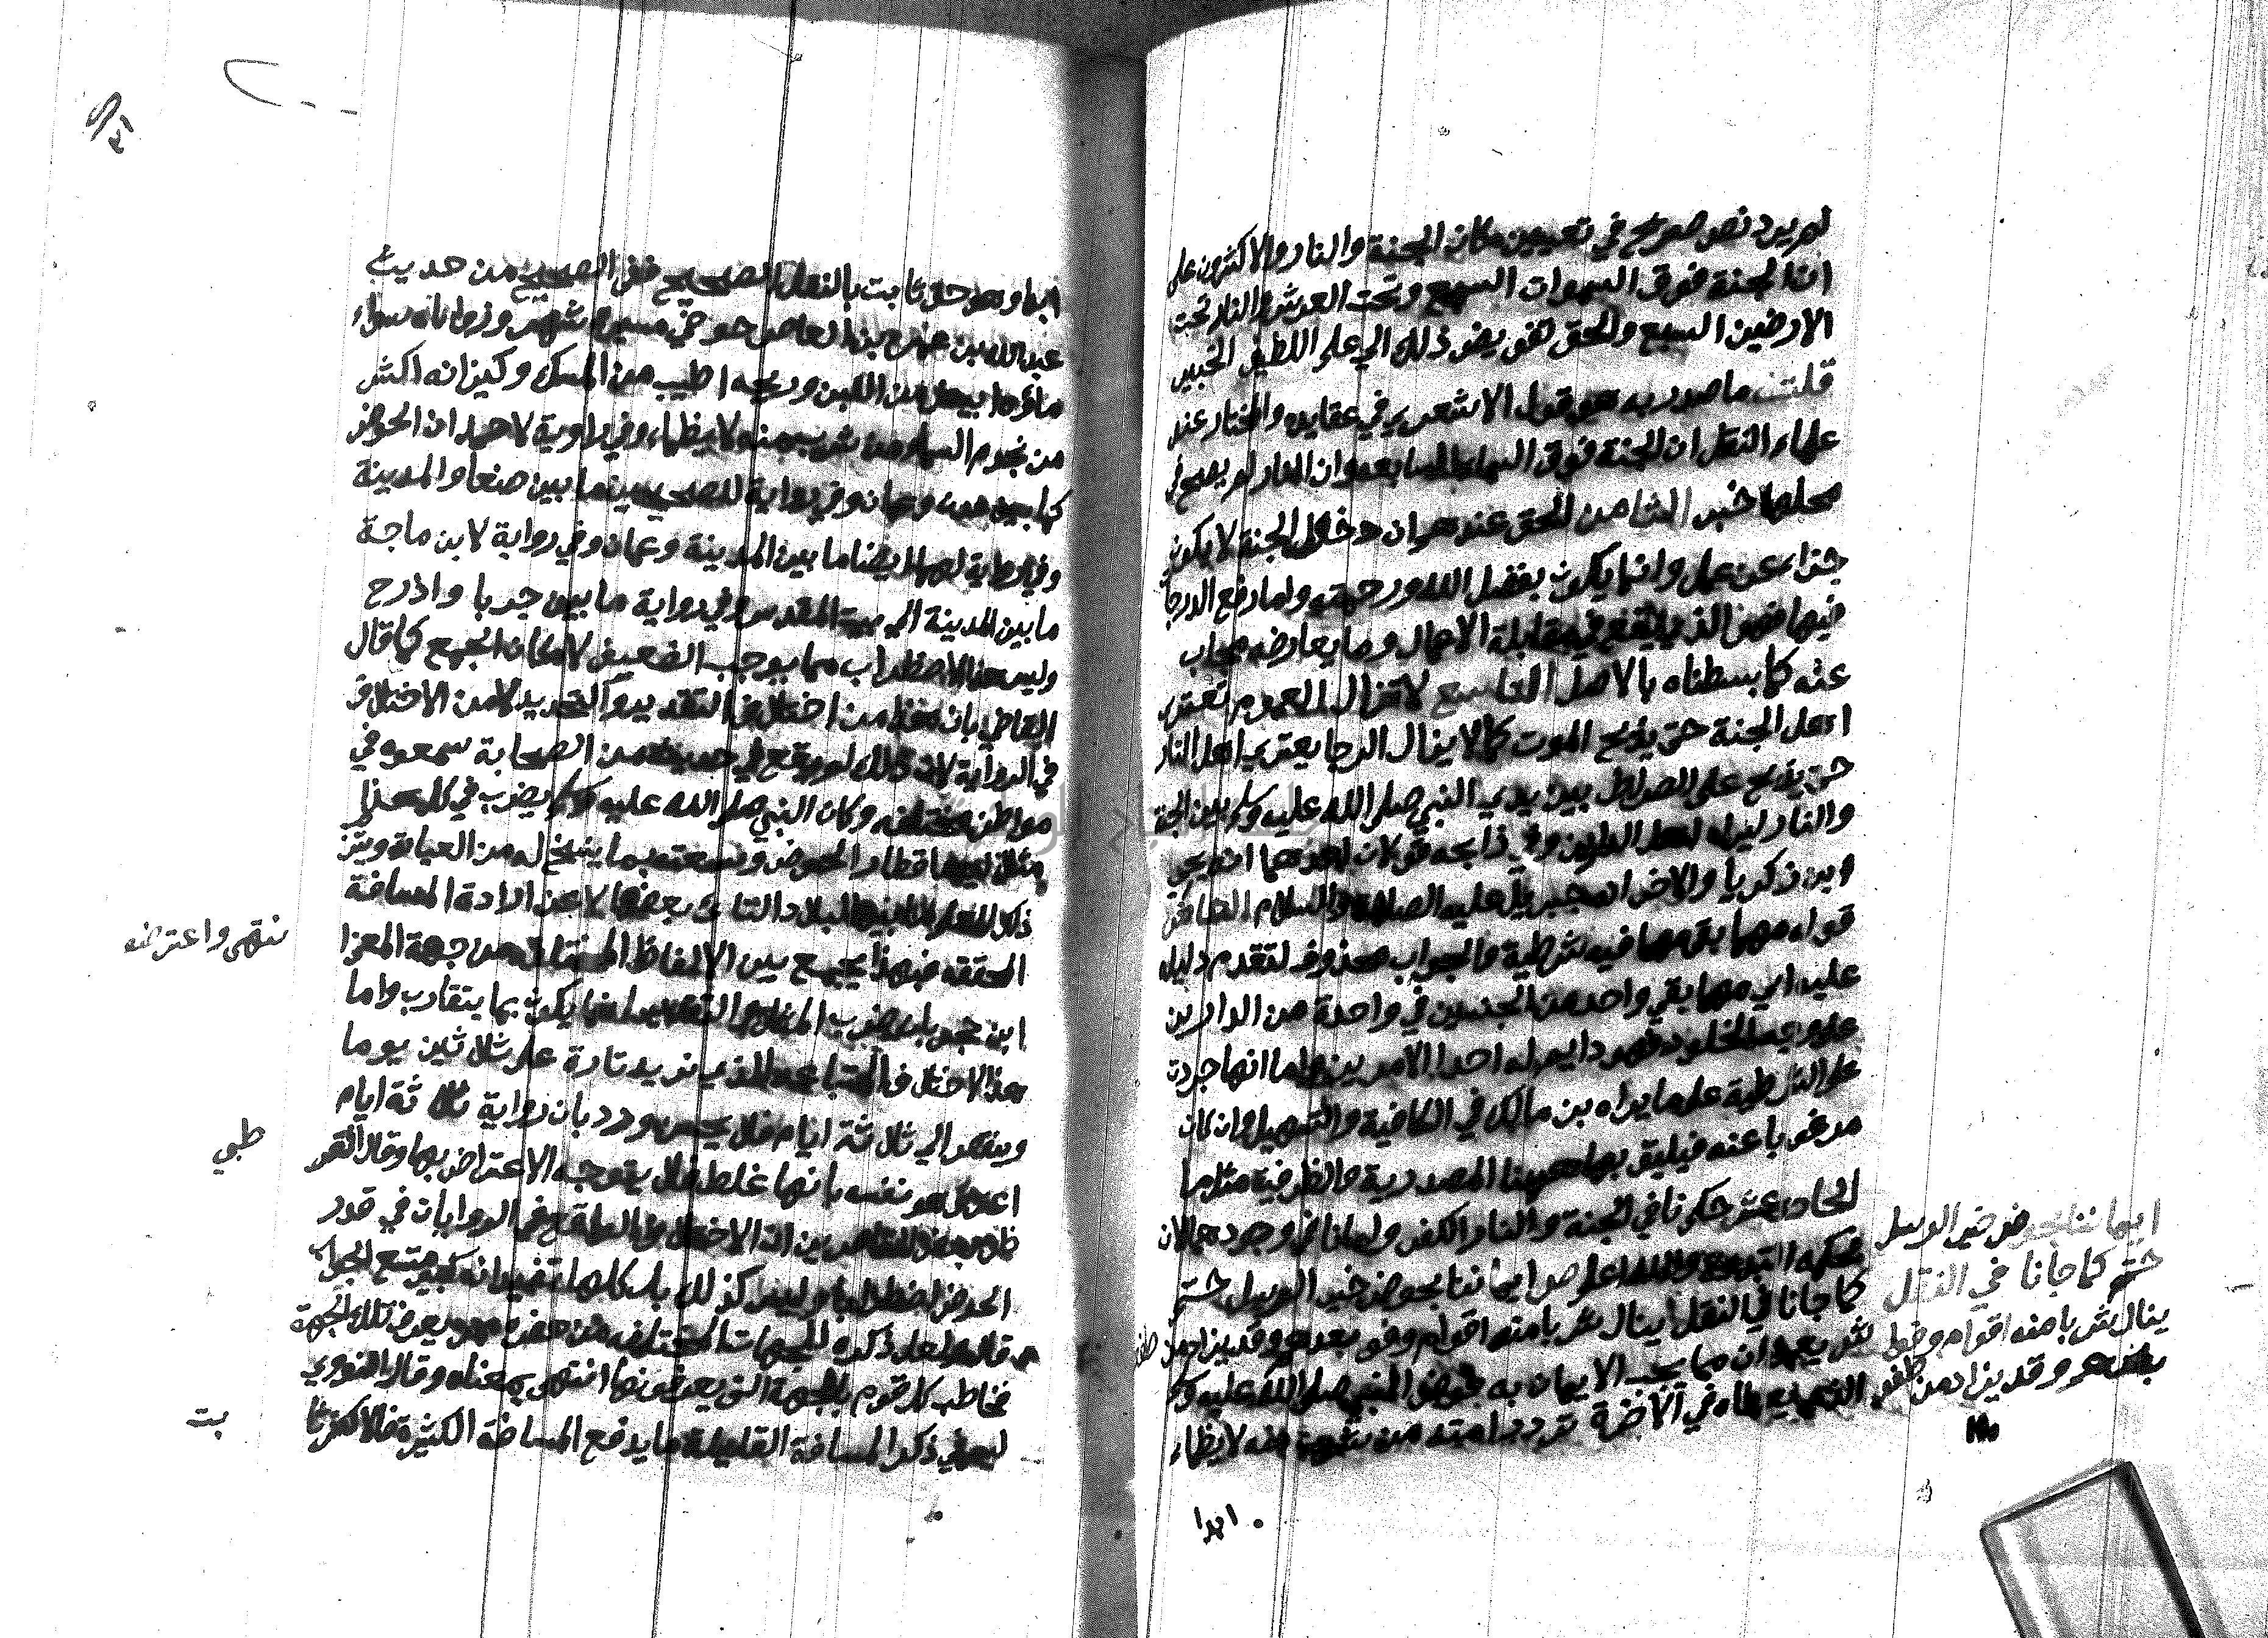 لم يرد نص صريح في تعيين مكان الجنة والنار والاكثرون على
ان الجنة فوق السموات السبع وتحت العرش والنار تحت
الارضين السبع والحق تفويض ذلك الي علم اللطيف الخبير
قلت ما صدر به هو قول الاشعري في عقايده والمختار عند
علماء النقل ان الجنة فوق السماء السابعه وان النار لم يصح في
محلها خبر الثامن الحق عندهم ان دخول الجنة لا يكون
جزاء عن عمل وانما يكون بفضل الله ورحمته واما رفع الدرجا
فيها فهو الذي يقع في مقابلة الاعمال وما يعارضه مجاب
عنه كما بسطناه بالاصل التاسع لا تزال الهموم تعتري
اهل الجنة حتى يذبح الموت كما لا يزال الرجا يعتري اهل النار
حتى يذبح على الصراط بين يدي النبي صلى الله عليه وسلم بين الجنة
والنار ليراه اهل الدارين وفي ذابحه قولان احدهما انه يحي
ابن زكريا والاخر انه جبريل عليه الصلاة والسلام العاشر
قوله مهما بقي مهما فيه شرطية والجواب محذوف لتقدم دليله
عليه اي مهما بقي واحد من الجنسين في واحدة من الدارين
على وجه الخلود فهو دايم له احد الامرين واما انها جردت
عن الشرطية على ما يراه بن مالك في الكافية والتسهيل وان كان
مرغوبا عنه فيليق بها ههنا المصدرية والظرفية مثل ما
الحادي عشر حكرنا في الجنة والنار الكفر ولعانا في وجودهما الان
فحكمه التبديع والله اعلم ص ايماننا بحوض خير الرسل حتم
كما جانا في النقل ينال شربا منه اقوام وفوا بعهدهم وقل يذاد من طغوا
ش يعني ان مما يجب الايمان به حوض النبي صلى الله عليه وسلم
الذي يعطاه في الاخرة ترده امته من شرب منه لا يظماء
ابدا
ايماننا بحوض خير الرسل
حتم كما جانا في النقل
ينال شربا منه اقوام وفوا
بعهدهم وقد يذاد من طغوا
ابدا وهو حق ثابت بالنقل الصحيح ففي الصحيح من حديث
عبد الله بن عمرو بن العاص حوضي مسيرة شهر وزواياه سواء
ماؤه ابيض من اللبن وريحه اطيب من المسك وكيزانه اكثر
من نجوم السماء من شرب منه لا يظماء وفي رواية لاحمد ان الحوض
كما بين عدن وعمان وفي رواية للصحيحين ما بين صنعا والمدينة
وفي رواية لهما ايضا ما بين المدينة وعمان وفي رواية لابن ماجة
ما بين المدينة الي بيت المقدس وفي رواية ما بين جربا واذرح
وليس هذا الاضطراب مما يوجب الضعيف لامكان الجمع كما قال
القاضي بانه من اختلاف التقدير والتحديد لا من الاختلاف
في الرواية لان ذلك لم يقع في حديث من الصحابة سمعوه في
مواطن مختلفه وكان النبي صلى الله عليه وسلم يضرب في كل هذا
مثلا لبعد اقطار الحوض وسعته بما يسنح له من العبارة ويقر
ذلك للعلم ببعد بين البلاد النائ بعضها لا عن ارادة المسافة
المحققه فبهذا يجمع بين الالفاظ المختلفه من جهة المعنى
انتهى واعترضه
ابن حجر بان ضرب المثل والتقدير انما يكون بما يتقارب واما
هذا الاختلاف المتباعد الذي يزيد تارة على ثلاثين يوما
وينقص الي ثلاثة ايام فلا يحسن ورد بان رواية ثلاثة ايام
اعلاها هو نفسه بانها غلط فلا يتوجه الاعتراض بها وقال القر
طبي
ظن بعض القاصرين ان الاختلاف الواقع في الروايات في قدر
الحوض اضطرابا وليس كذلك بل كلها تفيد انه كبير متسع الجوانب
قال ولعل ذكره للجهات المختلفه من حضره ممن يعرف تلك الجهة
فخاطب كل قوم بالجهة التي يعرفونها انتهى بمعناه وقال النووي
ليس في ذكر المسافة القليلة ما يدفع المسافة الكثيرة فالاكثر ثا
بت